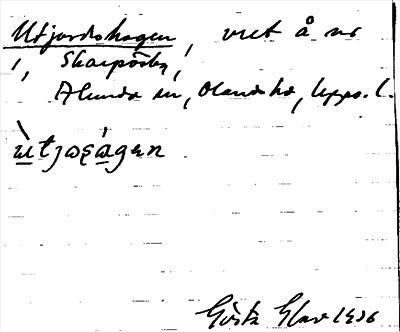 Utjordshagen, vret å nr
1, Skarpösby,
Alunda sn, Olands hd, Upps. l.
ùtjoʂágen
Gösta Glav 1936